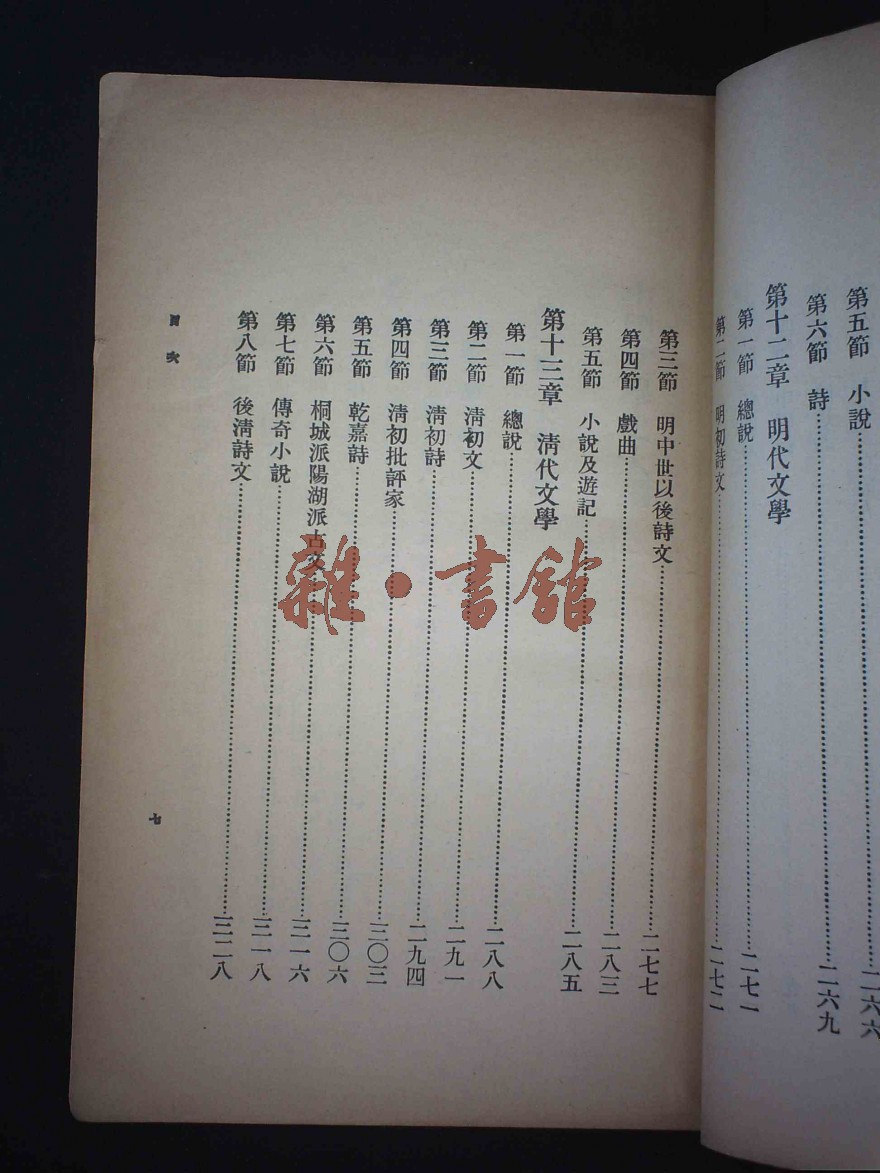 第五節　小說……二六六
第六節　詩……二六九
第十二章　明代文學
第一節　總說……二七一
第二節　明初詩文……二七二
第三節　明中世以後詩文……二七七
第四節　戲曲……二八三
第五節　小說及遊記……二八五
第十三章　清代文學
第一節　總說……二八八
第二節　清初文……二九一
第三節　清初詩……二九四
第四節　清初批評家……三〇三
第五節　乾嘉詩……三〇六
第六節　桐城派陽湖派古文……三一六
第七節　傳奇小說……三一八
第八節　後清詩文……三二八
目次
七
雜·書館